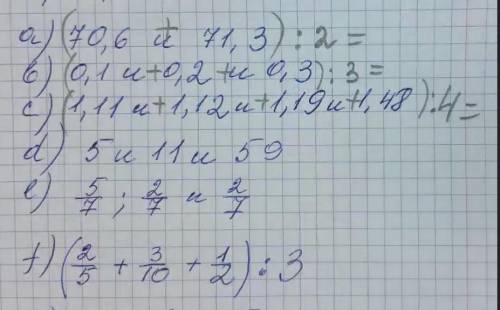 a) (70,6 и + 71,3) : 2 =
b) (0,1 и + 0,2 + и 0,3) : 3 =
c) (1,11 и + 1,12 и + 1,19 и + 1,48) : 4 =
d) 5 и 11 и 59
e) 5/7 ; 2/7 и 2/7
f) (2/5 + 3/10 + 1/2) : 3